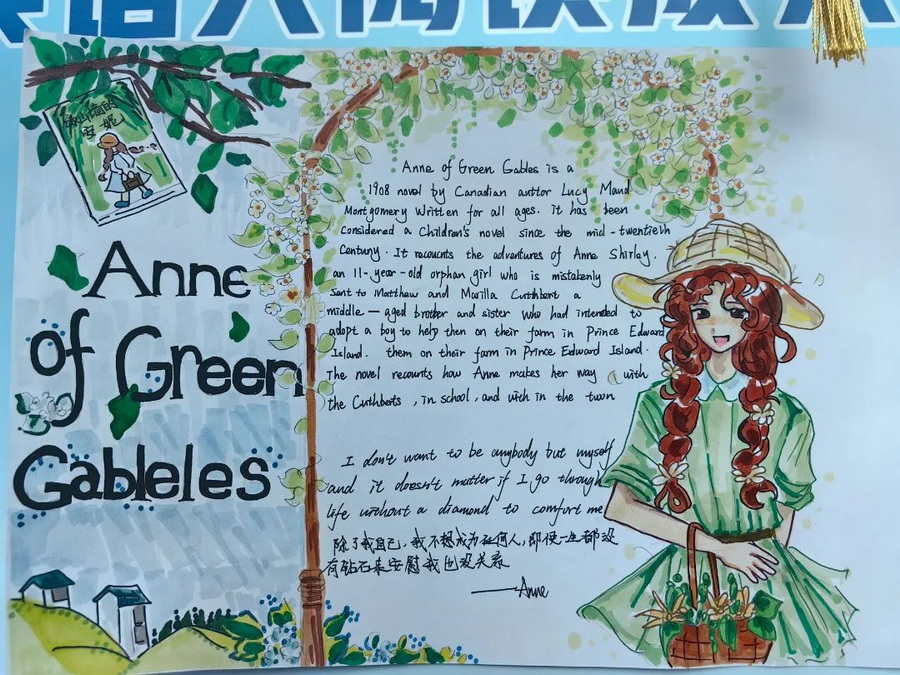 绿山墙的
安妮
Anne
of Green
Gableles
Anne of Green Gables is a
1908 novel by Canadian author Lucy Maud
Montgomery Written for all ages. it has been
Considered a Children's novel since the mid-twentieth
Century. It recounts the adventures of Anne Shirley.
an 11-year-old orphan girl who is mistakenly
sent to Matthew and Marilla Cuthbert a
middle—aged brother and sister who had intended to
adopt a boy to help then on their farm in Prince Edward
Island. them on their farm in Prince Edward Island.
The novel recounts how Anne makes her way with
the Cuthberts, in school, and with in the town
I don't want to be anybody but myself
and it doesn't matter if I go through
life without a diamond to comfort me
除了我自己,我不想成为任何人,即使一生都没
有钻石来安慰我也没关系
——Anne